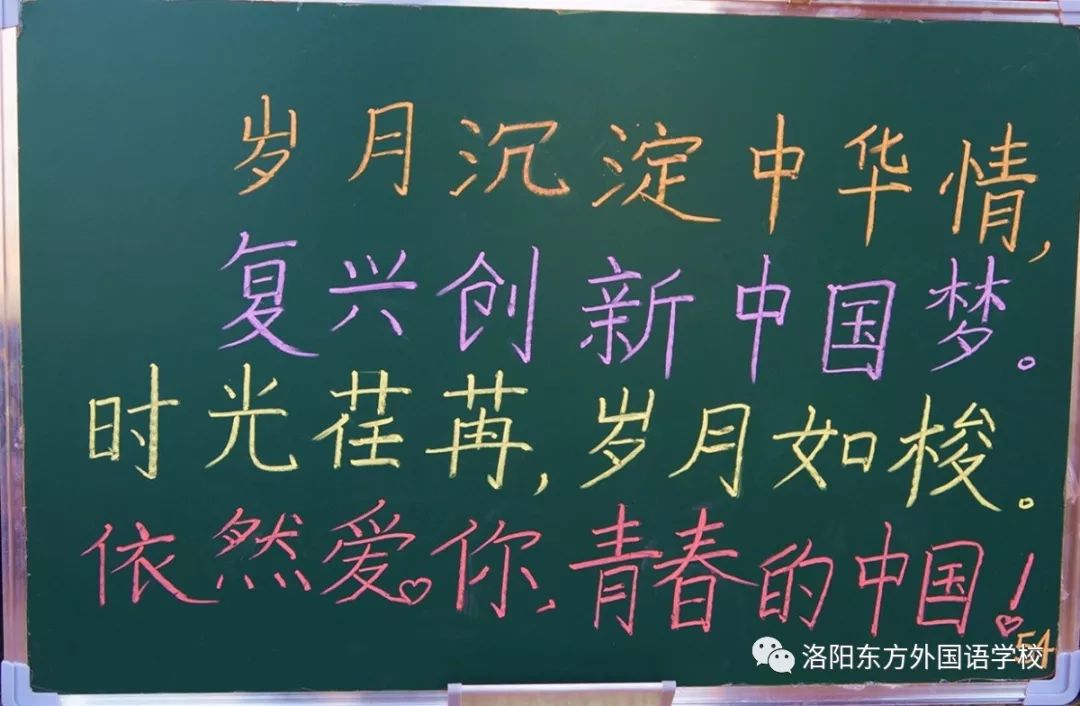 岁月沉淀中华情,
复兴创新中国梦。
时光荏苒,岁月如梭。
依然爱你,青春的中国!
54
洛阳东方外国语学校